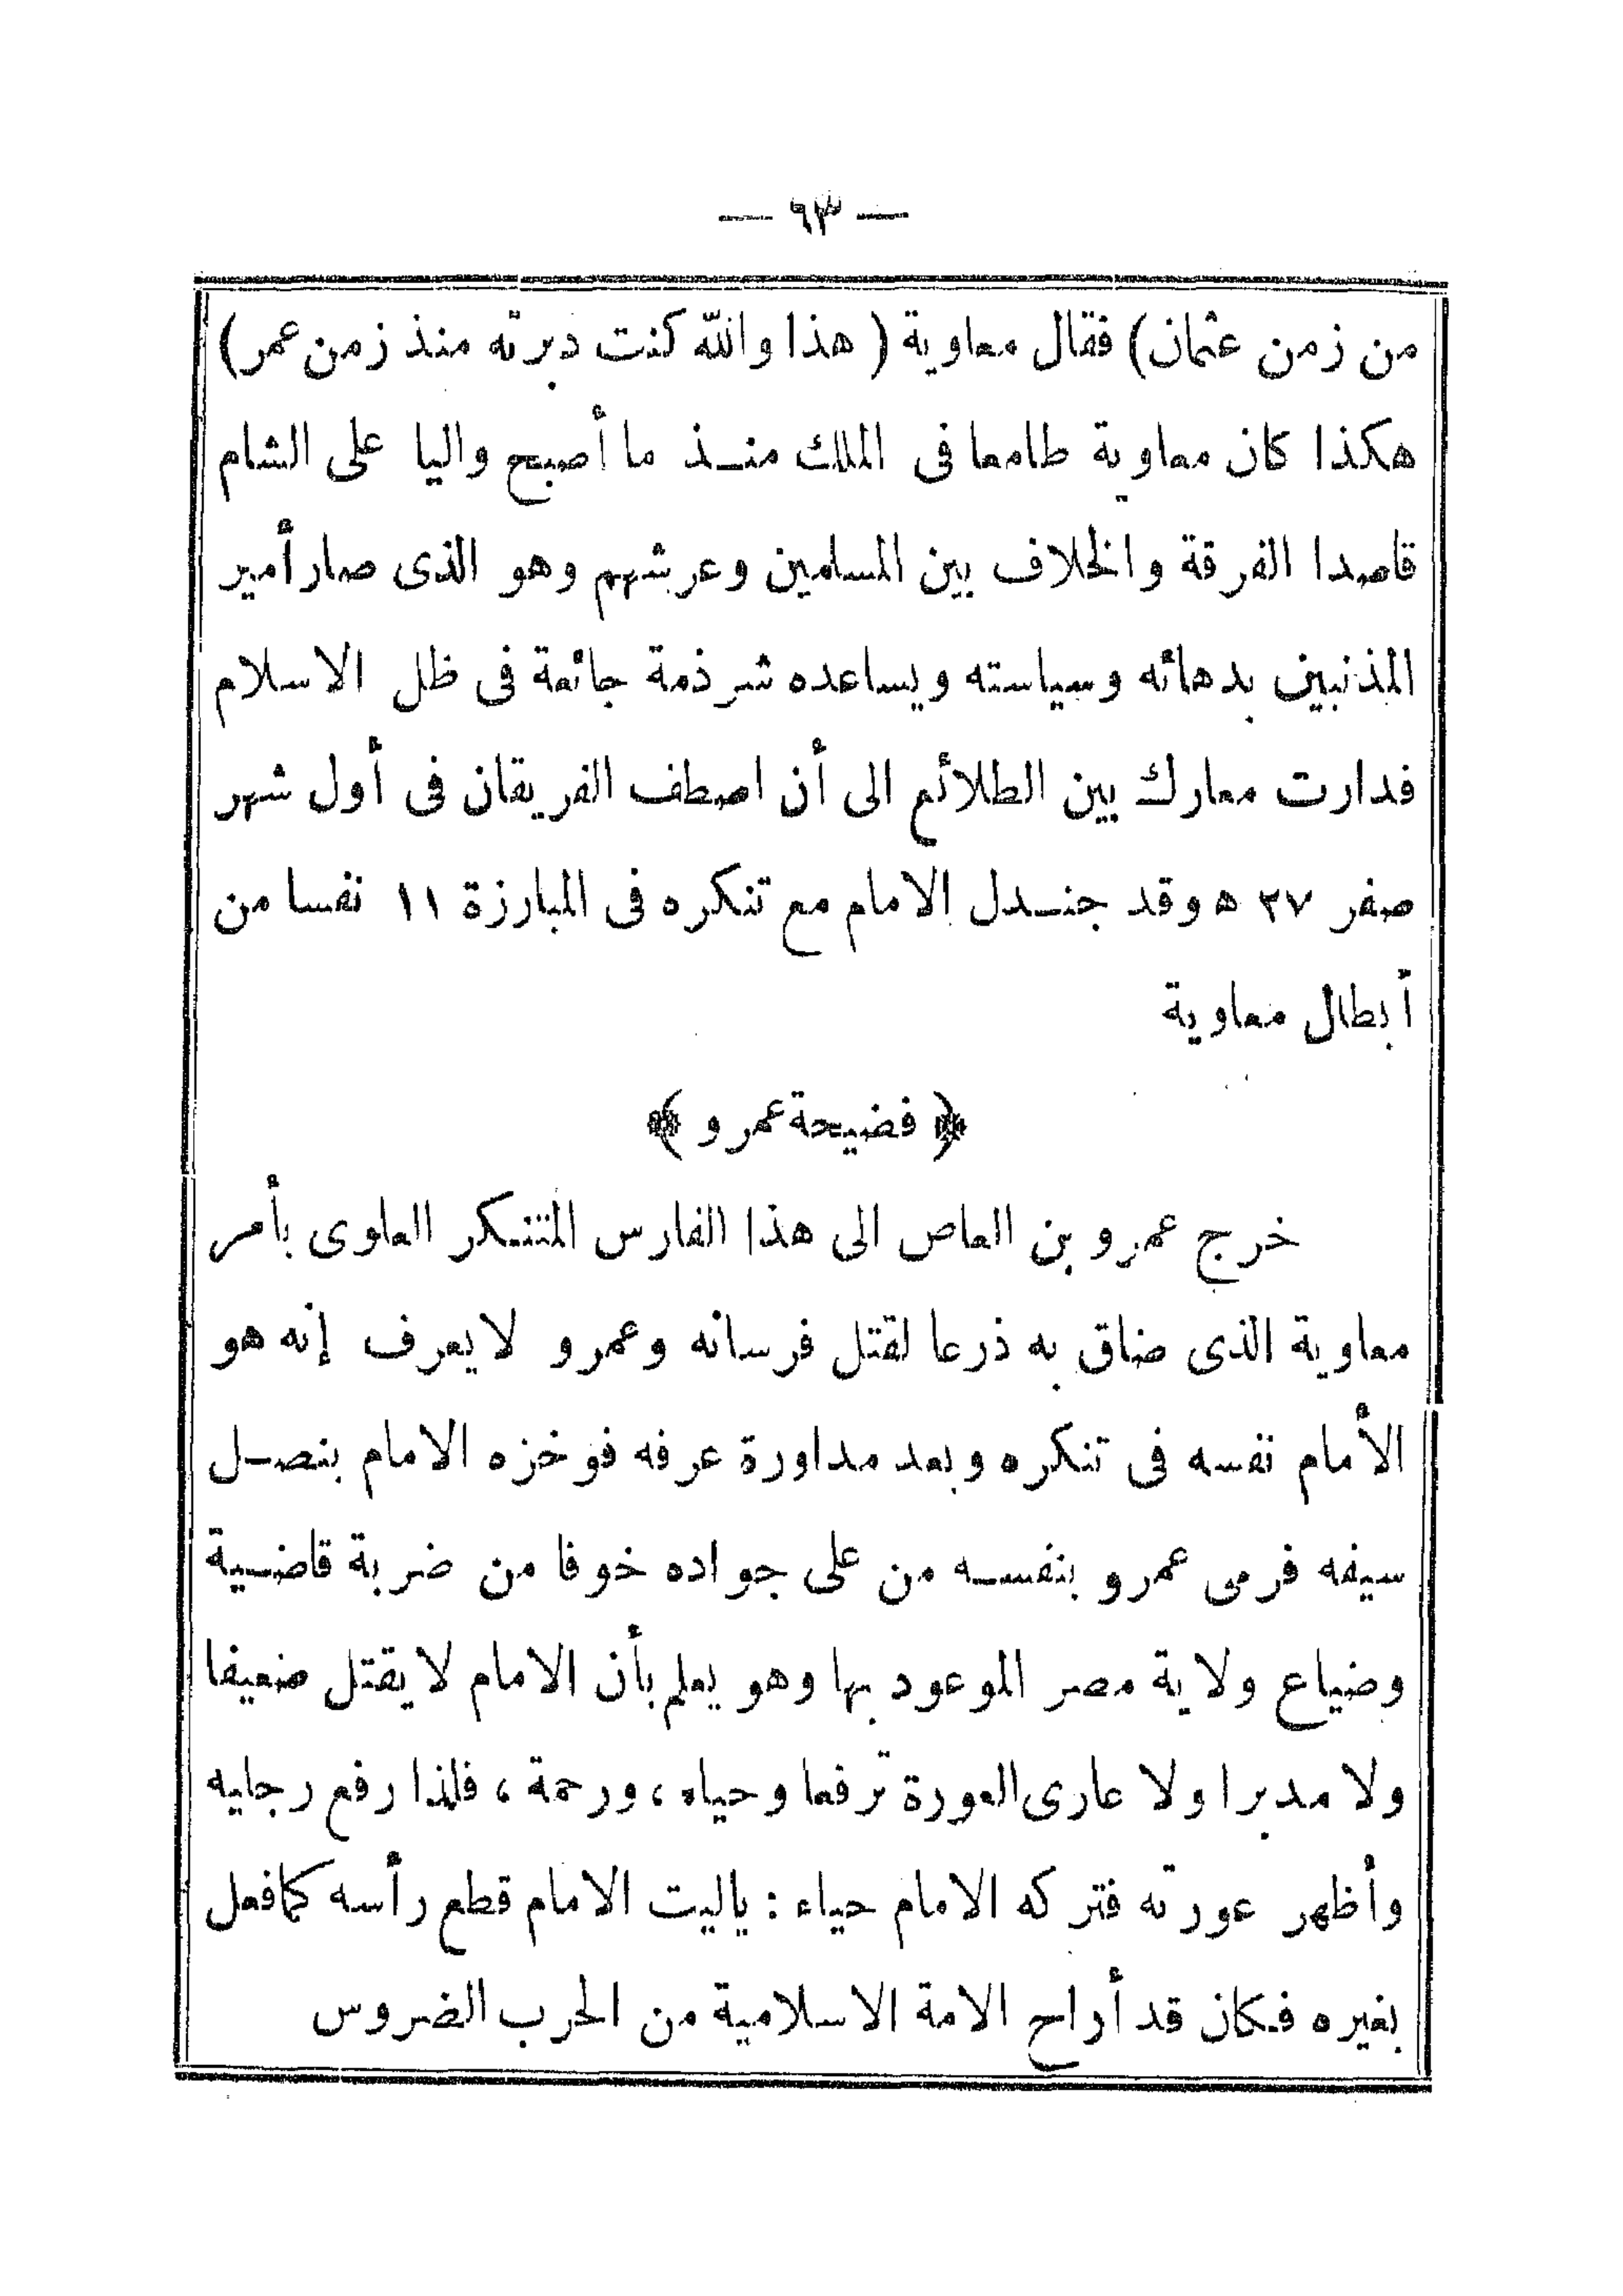 — ٦٣ —
من زمن عثمان) فقال معاوية ( هذا والله كنت دبرته منذ زمن عمر)
هكذا كان معاوية طامعا فى الملك منذ ما أصبح واليا على الشام
قاصدا الفرقة والخلاف بين المسلمين وعرشهم وهو الذى صار أمير
المذنبين بدهائه وسياسته ويساعده شرذمة جائعة فى ظل الاسلام
فدارت معارك بين الطلائع الى أن اصطف الفريقان فى أول شهر
صفر ٣٧ ه وقد جندل الامام مع تنكره فى المبارزة ١١ نفسا من
أبطال معاوية
﴿ فضيحة عمرو ﴾
خرج عمرو بن العاص الى هذا الفارس المتنكر العلوى بأمر
معاوية الذى ضاق به ذرعا لقتل فرسانه وعمرو لا يعرف إنه هو
الأمام نفسه فى تنكره وبعد مداورة عرفه فوخزه الامام بنصل
سيفه فرمى عمرو بنفسه من على جواده خوفا من ضربة قاضية
وضياع ولاية مصر الموعود بها وهو يعلم بأن الامام لا يقتل ضعيفا
ولا مدبرا ولا عارى العورة ترفعا وحياء ، ورحمة ، فلذا رفع رجليه
وأظهر عورته فتركه الامام حياء : ياليت الامام قطع رأسه كما فعل
بغيره فكان قد أراح الامة الاسلامية من الحرب الضروس